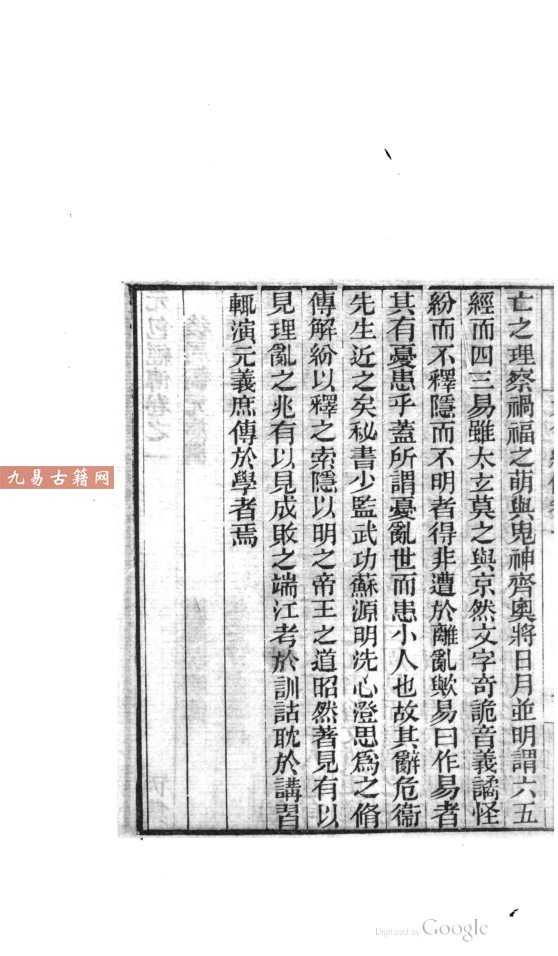 亡之理察禍福之萌與鬼神齊奧將日月並明謂六五
經而四三易雖太玄莫之與京然文字奇詭音義譎怪
紛而不釋隱而不明者得非遭於離亂歟易曰作易者
其有憂患乎蓋所謂憂亂世而患小人也故其辭危衞
先生近之矣秘書少監武功蘇源明洗心澄思爲之脩
傳解紛以釋之索隱以明之帝王之道昭然著見有以
見理亂之兆有以見成敗之端江考於訓詁耽於講習
輒演元義庶傳於學者焉
九易古籍网
Digitized by Google